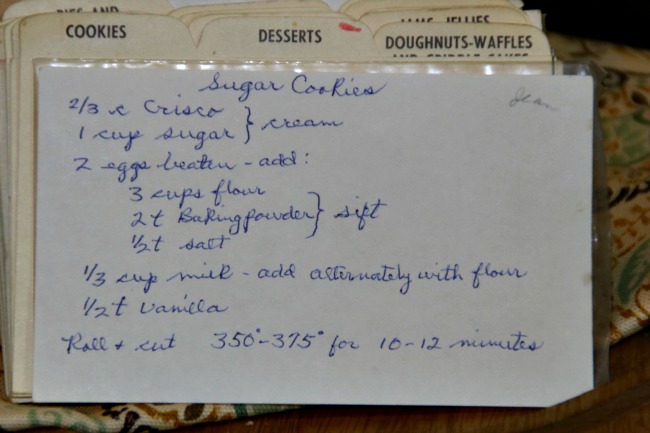 PIES AND
COOKIES
DESSERTS
JAMS-JELLIES
DOUGHNUTS-WAFFLES
AND GRIDDLE CAKES
Sugar Cookies
Jean
2/3 c Crisco
1 cup sugar } cream
2 eggs beaten - add:
3 cups flour
2 t Baking powder } sift
1/2 t salt
1/3 cup milk - add alternately with flour
1/2 t Vanilla
Roll + cut 350°-375° for 10-12 minutes